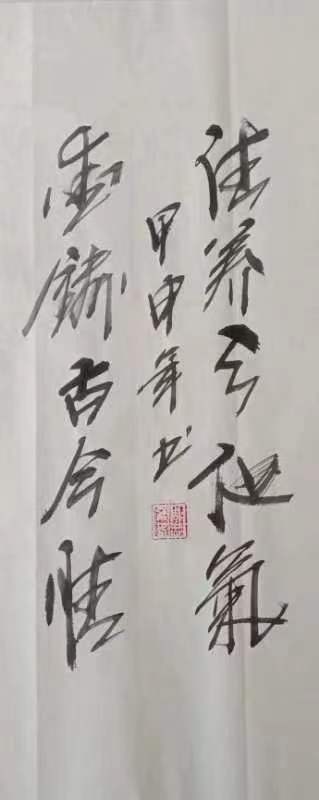 养天地氣
铸古今情
甲申年书